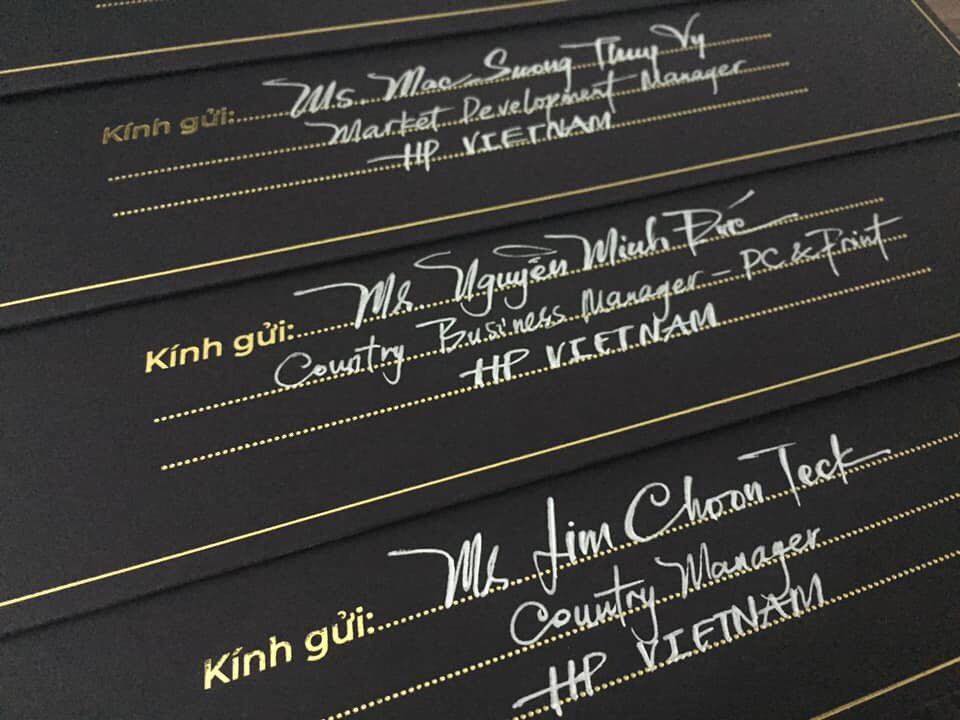 Kính gửi: Ms. Mac Suong Thuy Vy
Market Development Manager
HP VIETNAM
Kính gửi: Mr. Nguyễn Minh Đức
Country Business Manager - PC & Print
HP VIETNAM
Kính gửi: Mr Lim Choon Teck
Country Manager
HP VIETNAM